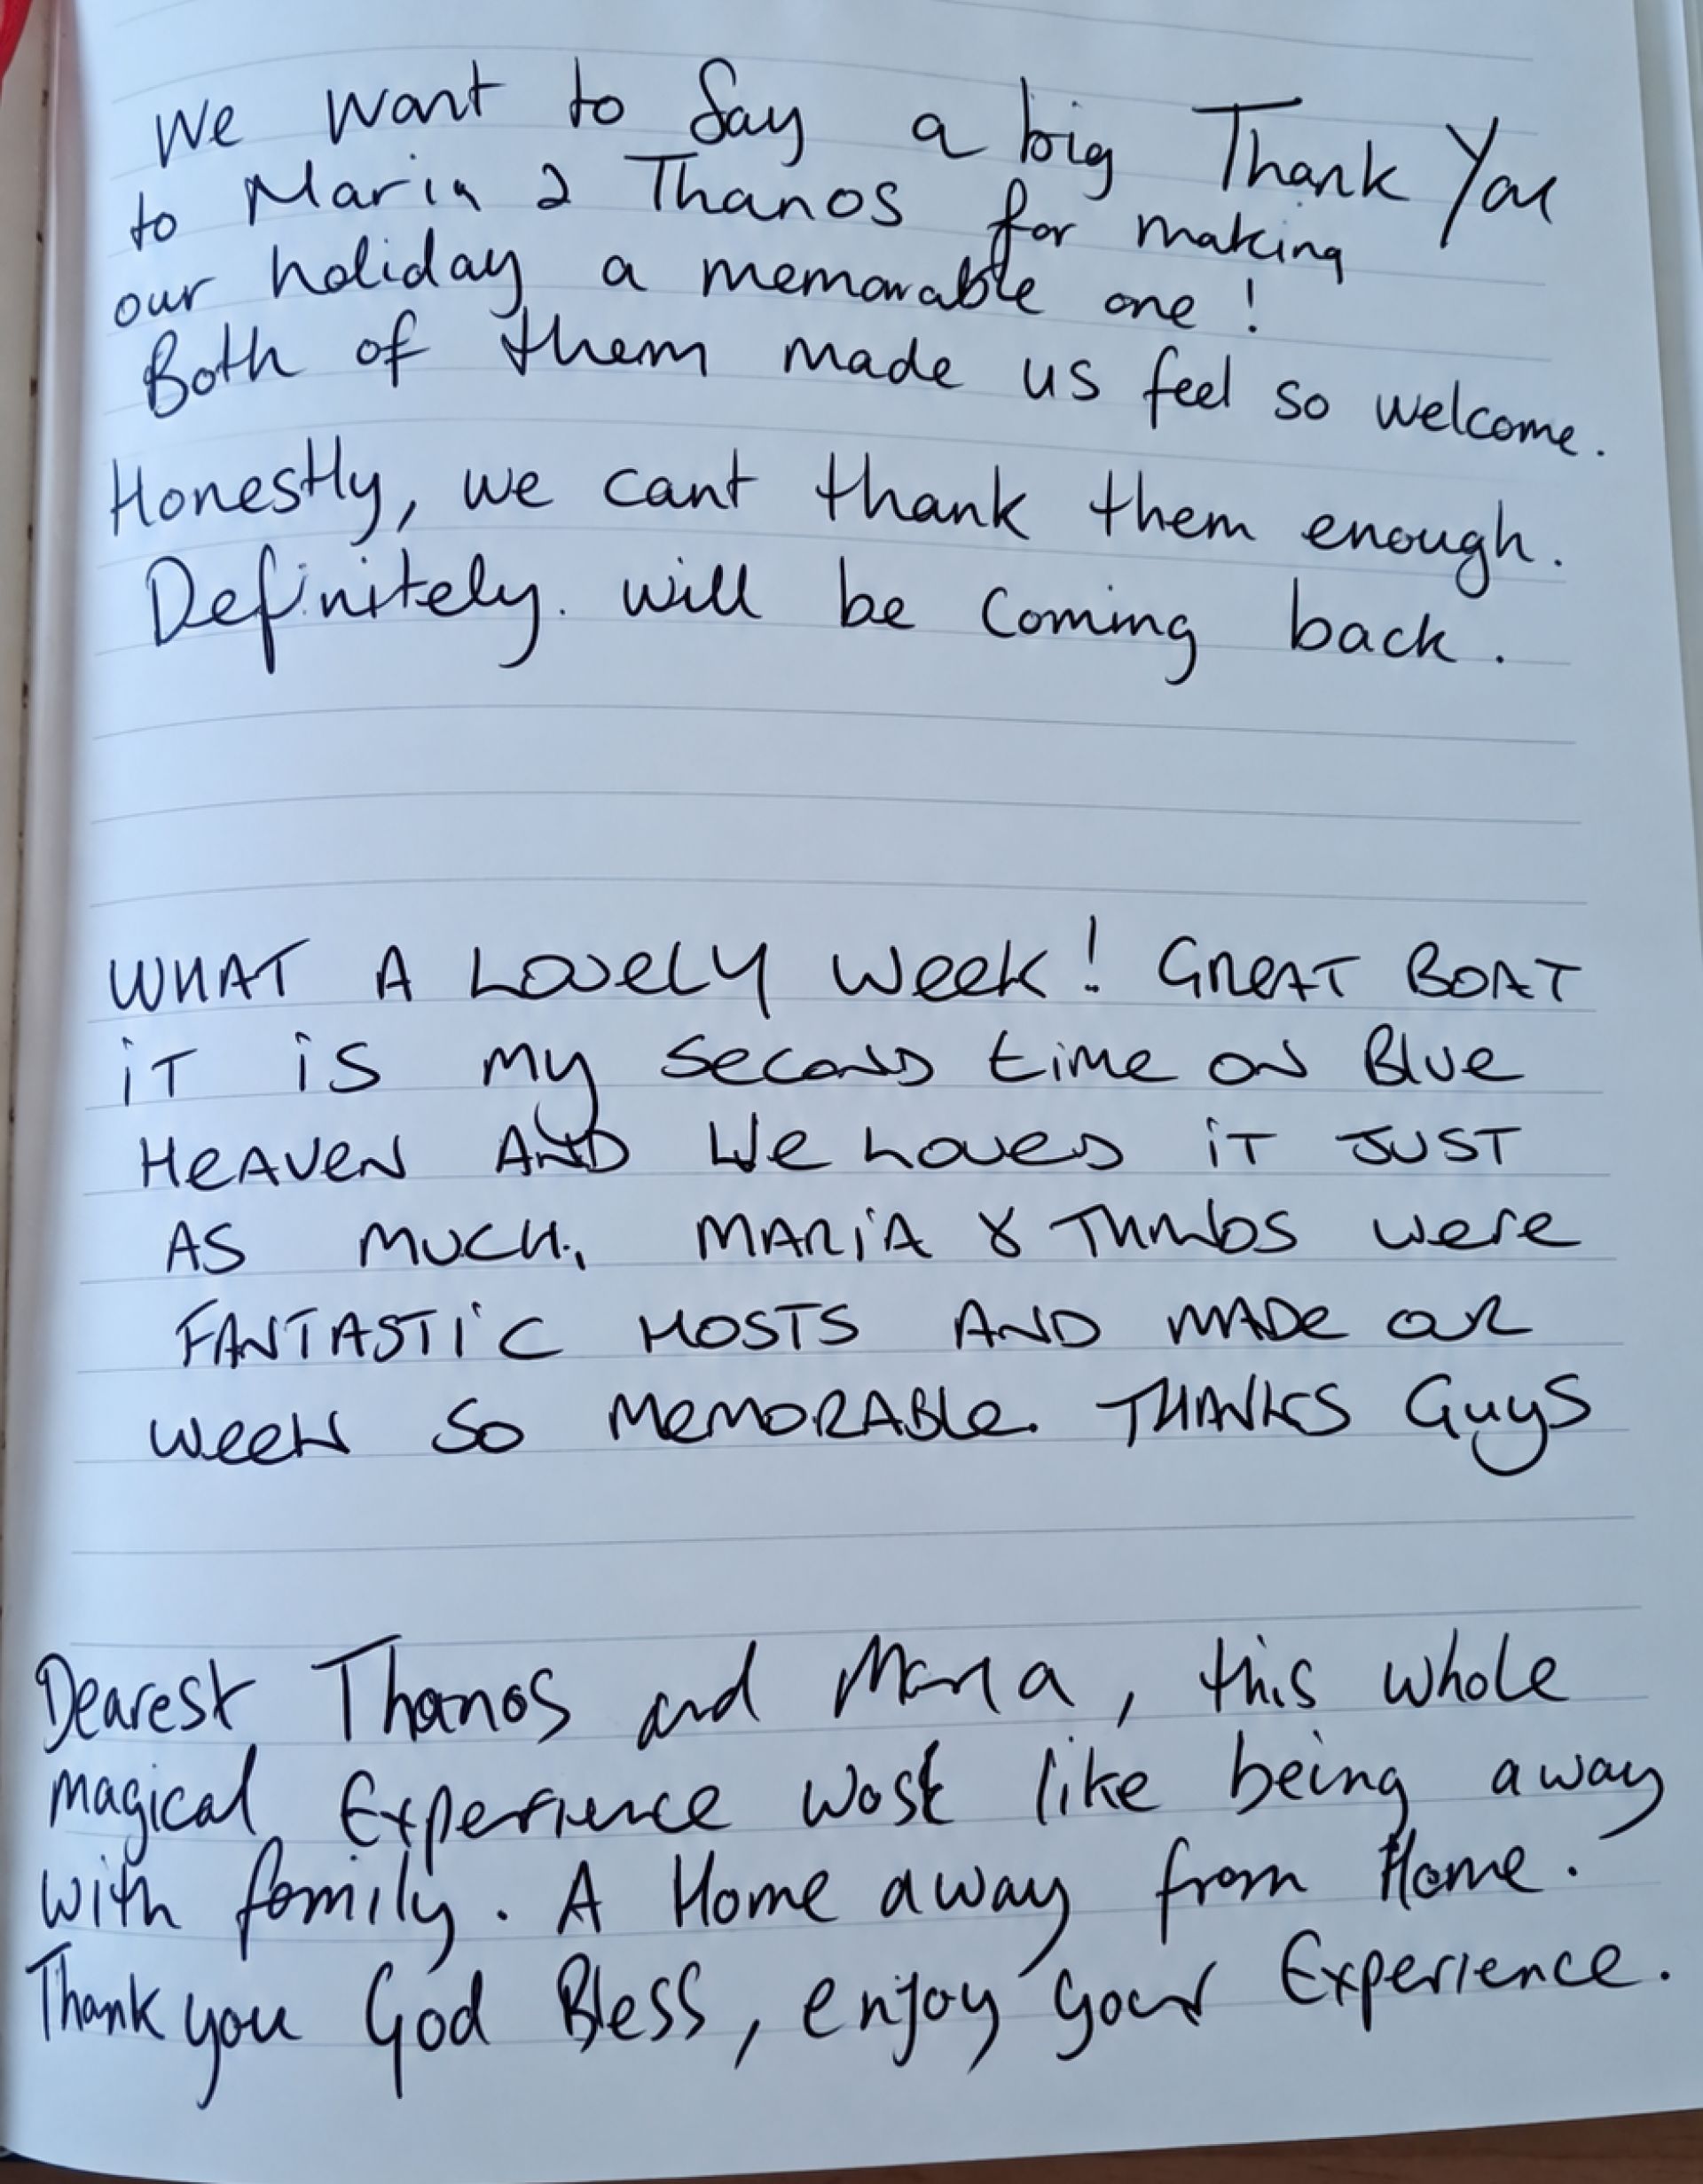 We want to Say a big Thank You
to Maria & Thanos for making
our holiday a memorable one!
Both of them made us feel so welcome.
Honestly, we cant thank them enough.
Definitely. will be Coming back.
WHAT A LOVELY WEEK! GREAT BOAT
iT iS MY SECOND time ON Blue
HEAVEN AND WE LOVED iT JUST
AS MUCH. MARiA & THANOS were
FANTASTiC HOSTS AND MADE OUR
WEEK SO MEMORABLE. THANKS GuyS
Dearest Thanos and Maria, this whole
magical Experience was like being away
with family. A Home away from Home.
Thank you God Bless, enjoy your Experience.